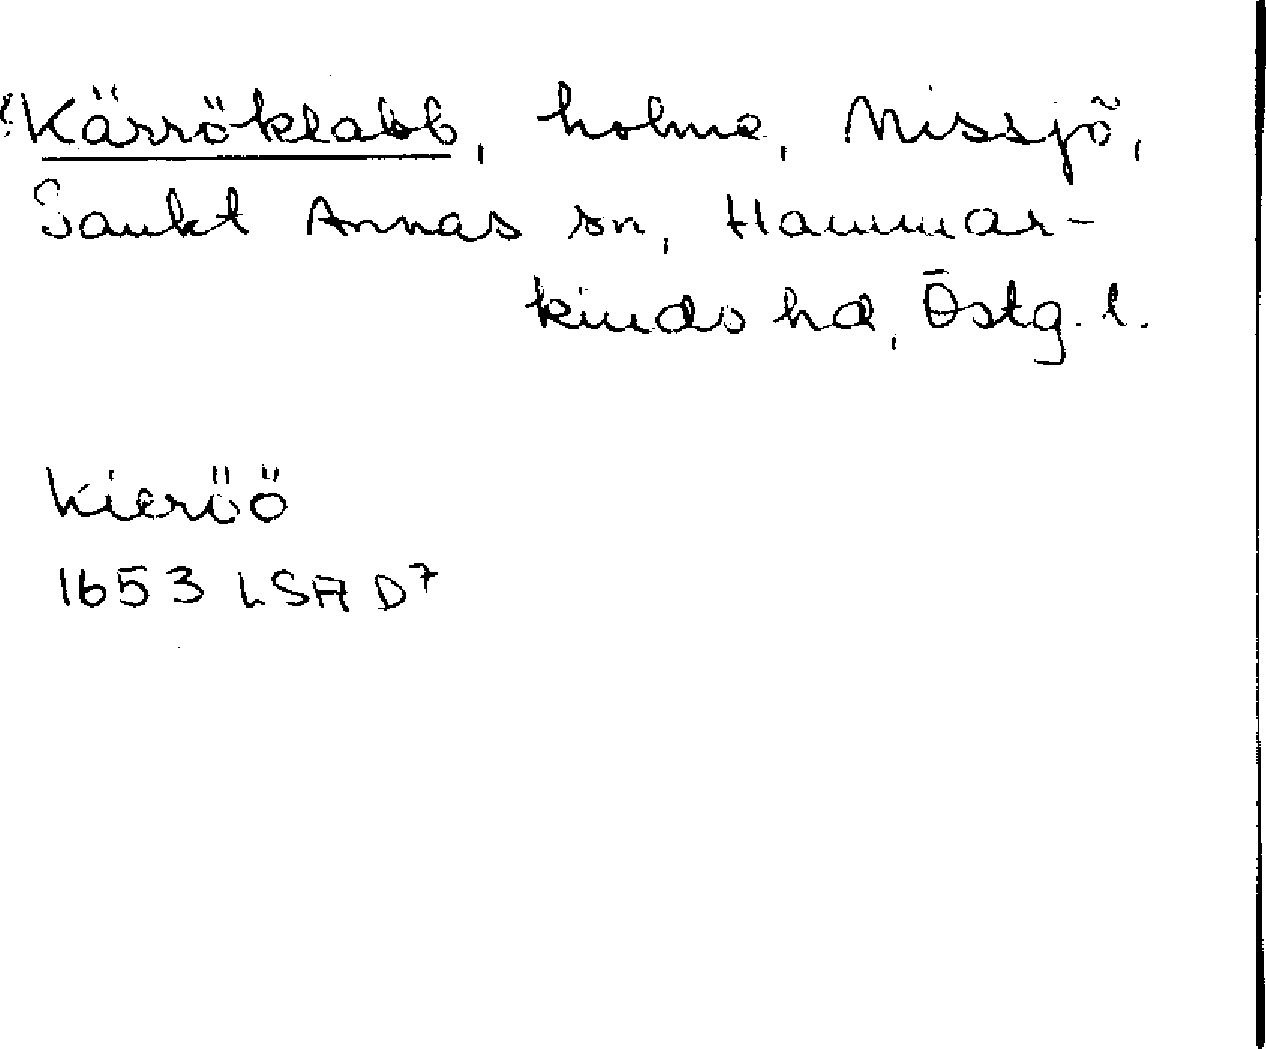 ?Kärröklabb, holme, Missjö,
Sankt Annas sn, Hammar-
kinds hd, Östg. l.
Kieröö
1653 LSA D7